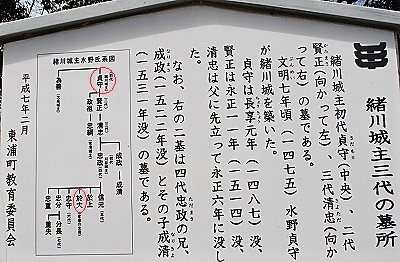 緒川城主三代の墓所
緒川城主初代貞守（中央）、二代
賢正（向かって左）、三代清忠（向か
って右）の墓である。
文明七年頃（一四七五）水野貞守
が緒川城を築いた。
貞守は長享元年（一四八七）没、
賢正は永正一一年（一五一四）没、
清忠は父に先立って永正六年に没し
た。
なお、右の二基は四代忠政の兄、
成政（一五二二年没）とその子成清
（一五三一年没）の墓である。
緒川城主水野氏系図
貞守
賢正
為善
清忠
政祖
忠綱
成政
成清
忠政
信元
於大
忠守
忠分
分長
忠重
重央
平成七年二月
東浦町教育委員会